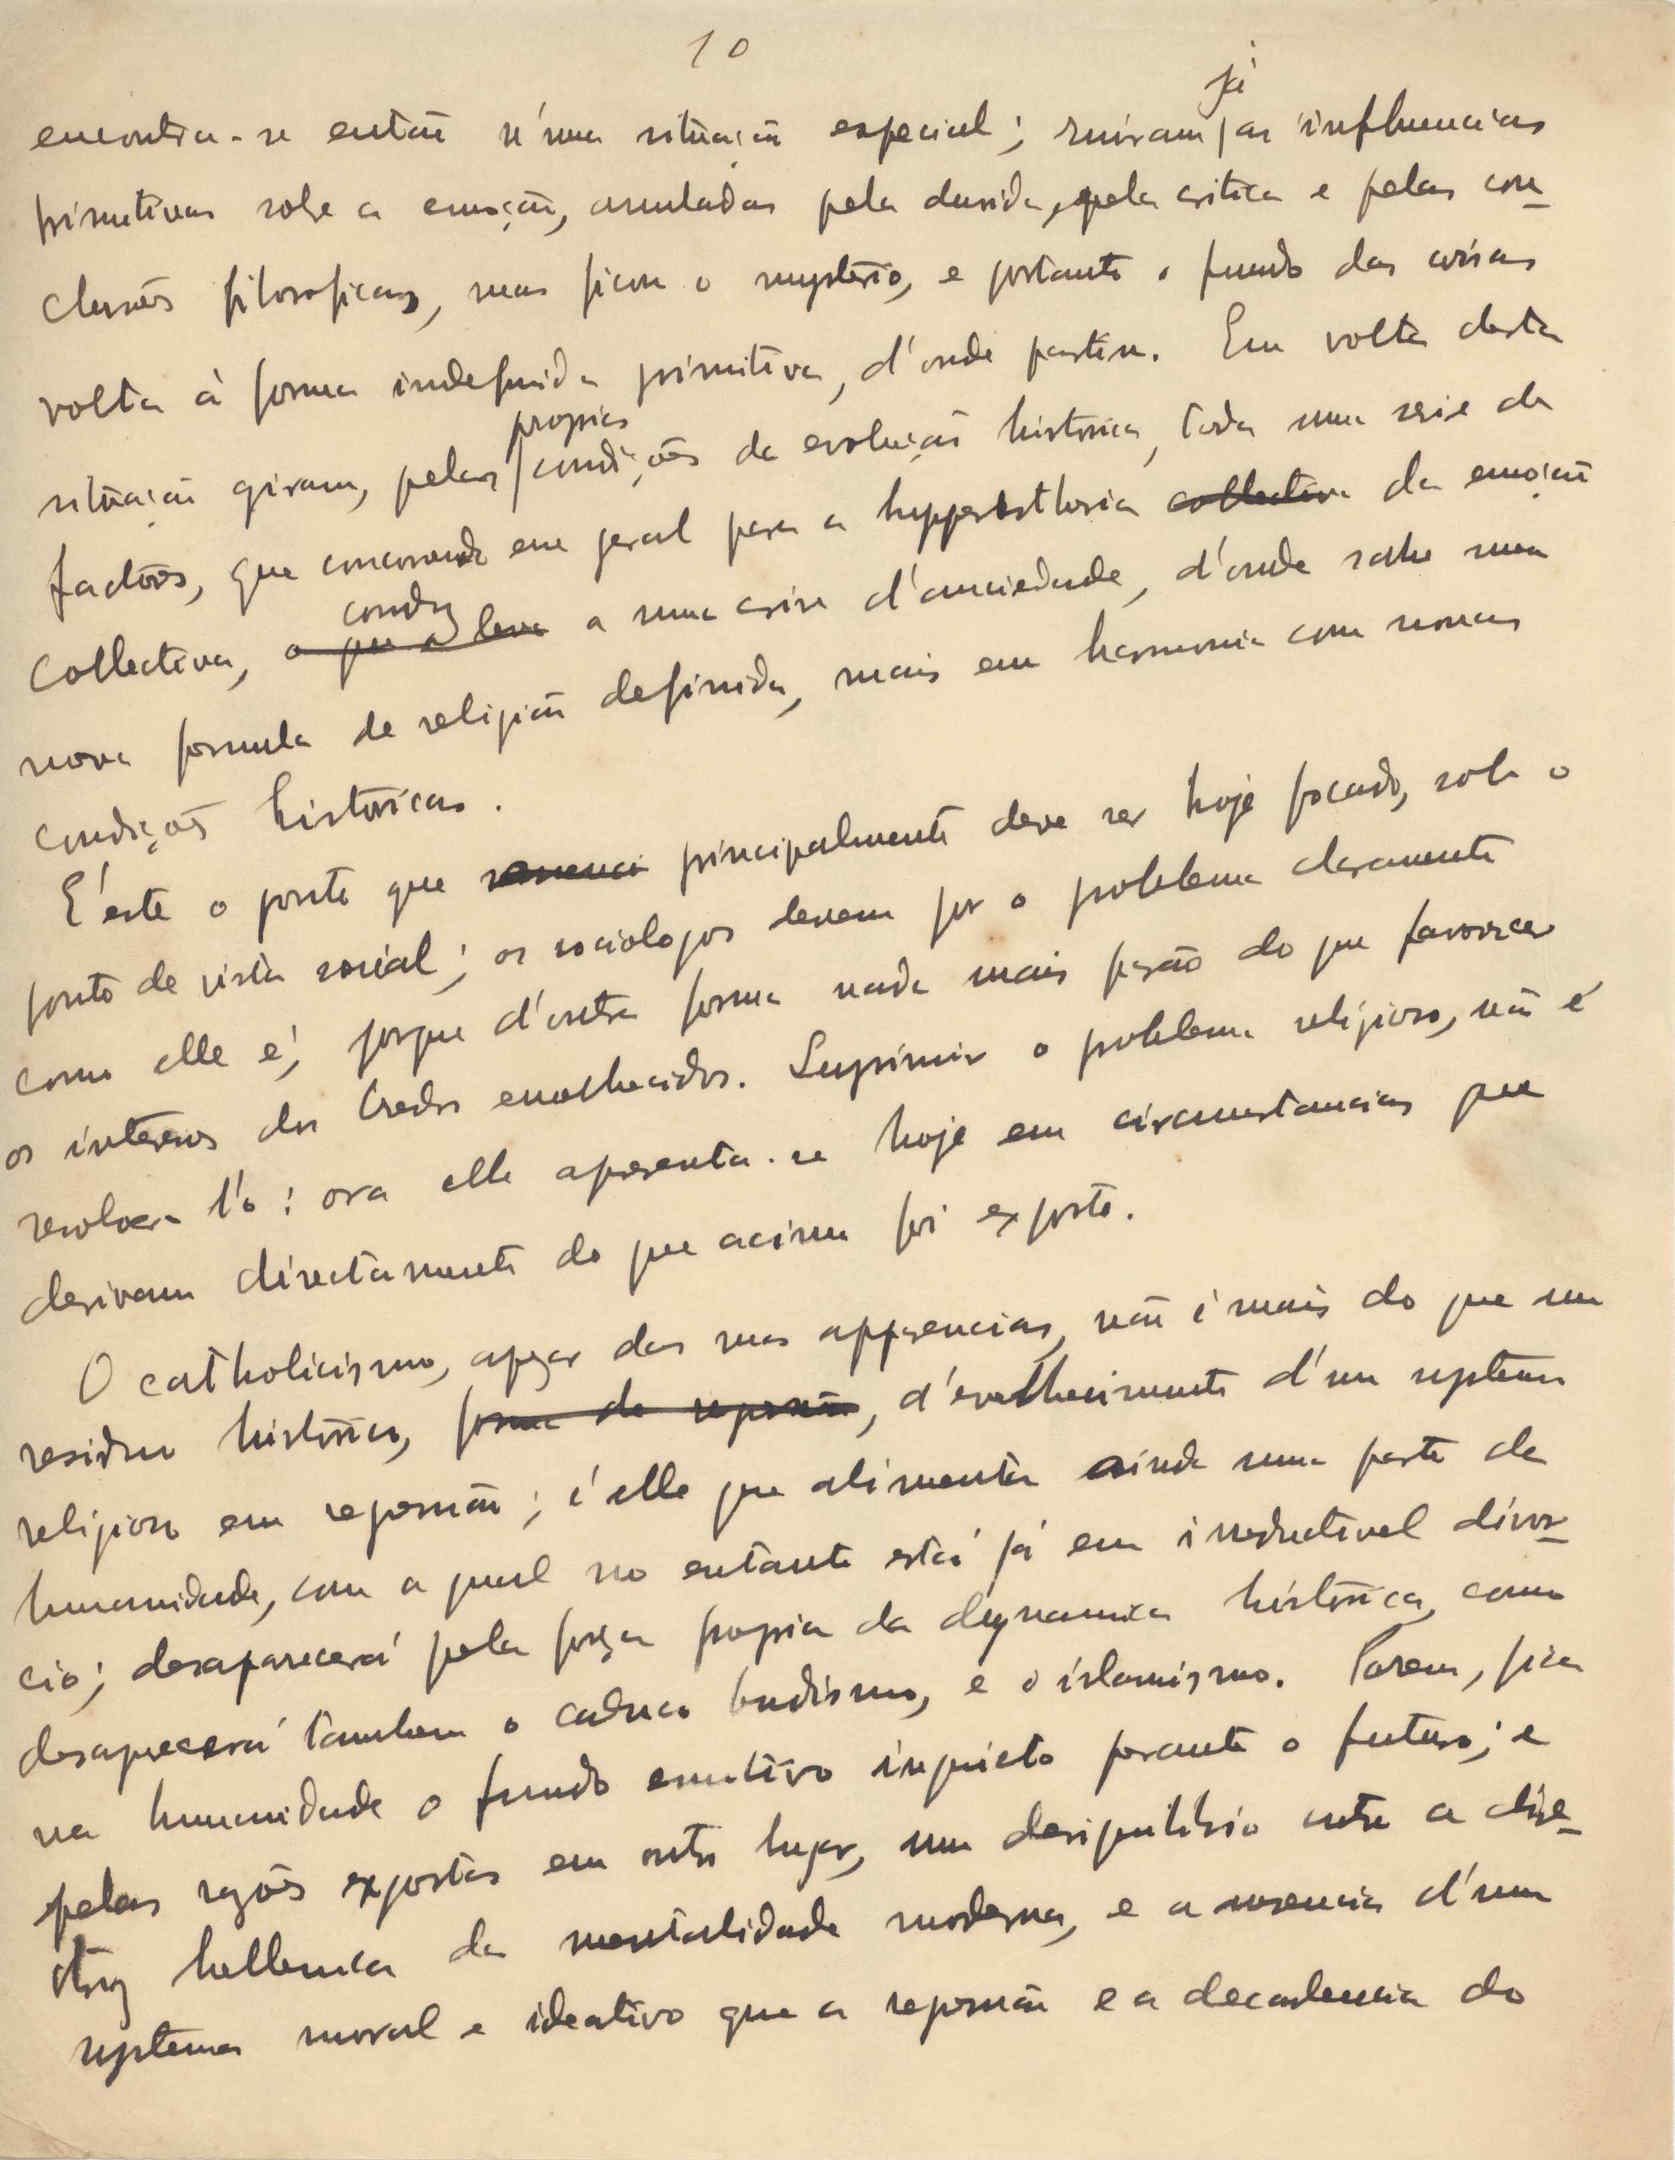 10
encontra-se então n'uma situação especial; ruiram já as influencias
primitivas sobre a emoção, annuladas pela duvida, pela critica e pelas con-
clusões filosoficas, mas ficou o mysterio, e portanto o fundo das coisas
volta á forma indefinida primitiva, d'onde partiu. Em volta desta
situação giram, pelas proprias condições da evolução historica, toda uma serie de
factores, que concorrendo em geral para a hyperesthesia collectiva da emoção
collectiva, o que a leva conduz a uma crise d'anciedade, d'onde sahe uma
nova formula de religião definida, mais em harmonia com novas
condições historicas.
É este o ponto que principalmente deve ser hoje focado, sob o
ponto de vista social; os sociologos devem pôr o problema claramente
como elle é, porque d'outra forma nada mais farão do que favorecer
os interesses dos credos envelhecidos. Suprimir o problema religioso, não é
resolve-l'o: ora elle apresenta-se hoje em circumstancias que
derivam directamente do que acima foi exposto.
O catholicismo, apezar das suas apparencias, não é mais do que um
residuo historico, forma de regressão, d'envelhecimento d'um systema
religioso em regressão; é elle que alimenta ainda uma parte da
humanidade, com a qual no entanto está já em irreductivel divor-
cio; desaparecerá pela força propria da dynamica historica, como
desaparecerá tambem o caduco budismo, e o islamismo. Porem, fica
na humanidade o fundo emotivo inquieto perante o futuro; e
pelas razões expostas em outro lugar, um desiquilibrio entre a
hellenica da mentalidade moderna, e a ausencia d'um
systema moral e ideativo que a regressão e a decadencia do